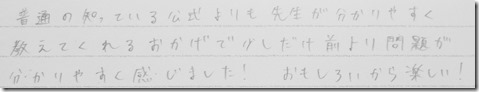 普通の知っている公式よりも先生が分かりやすく
教えてくれるおかげで少しだけ前より問題が
分かりやすく感じました! おもしろいから楽しい!